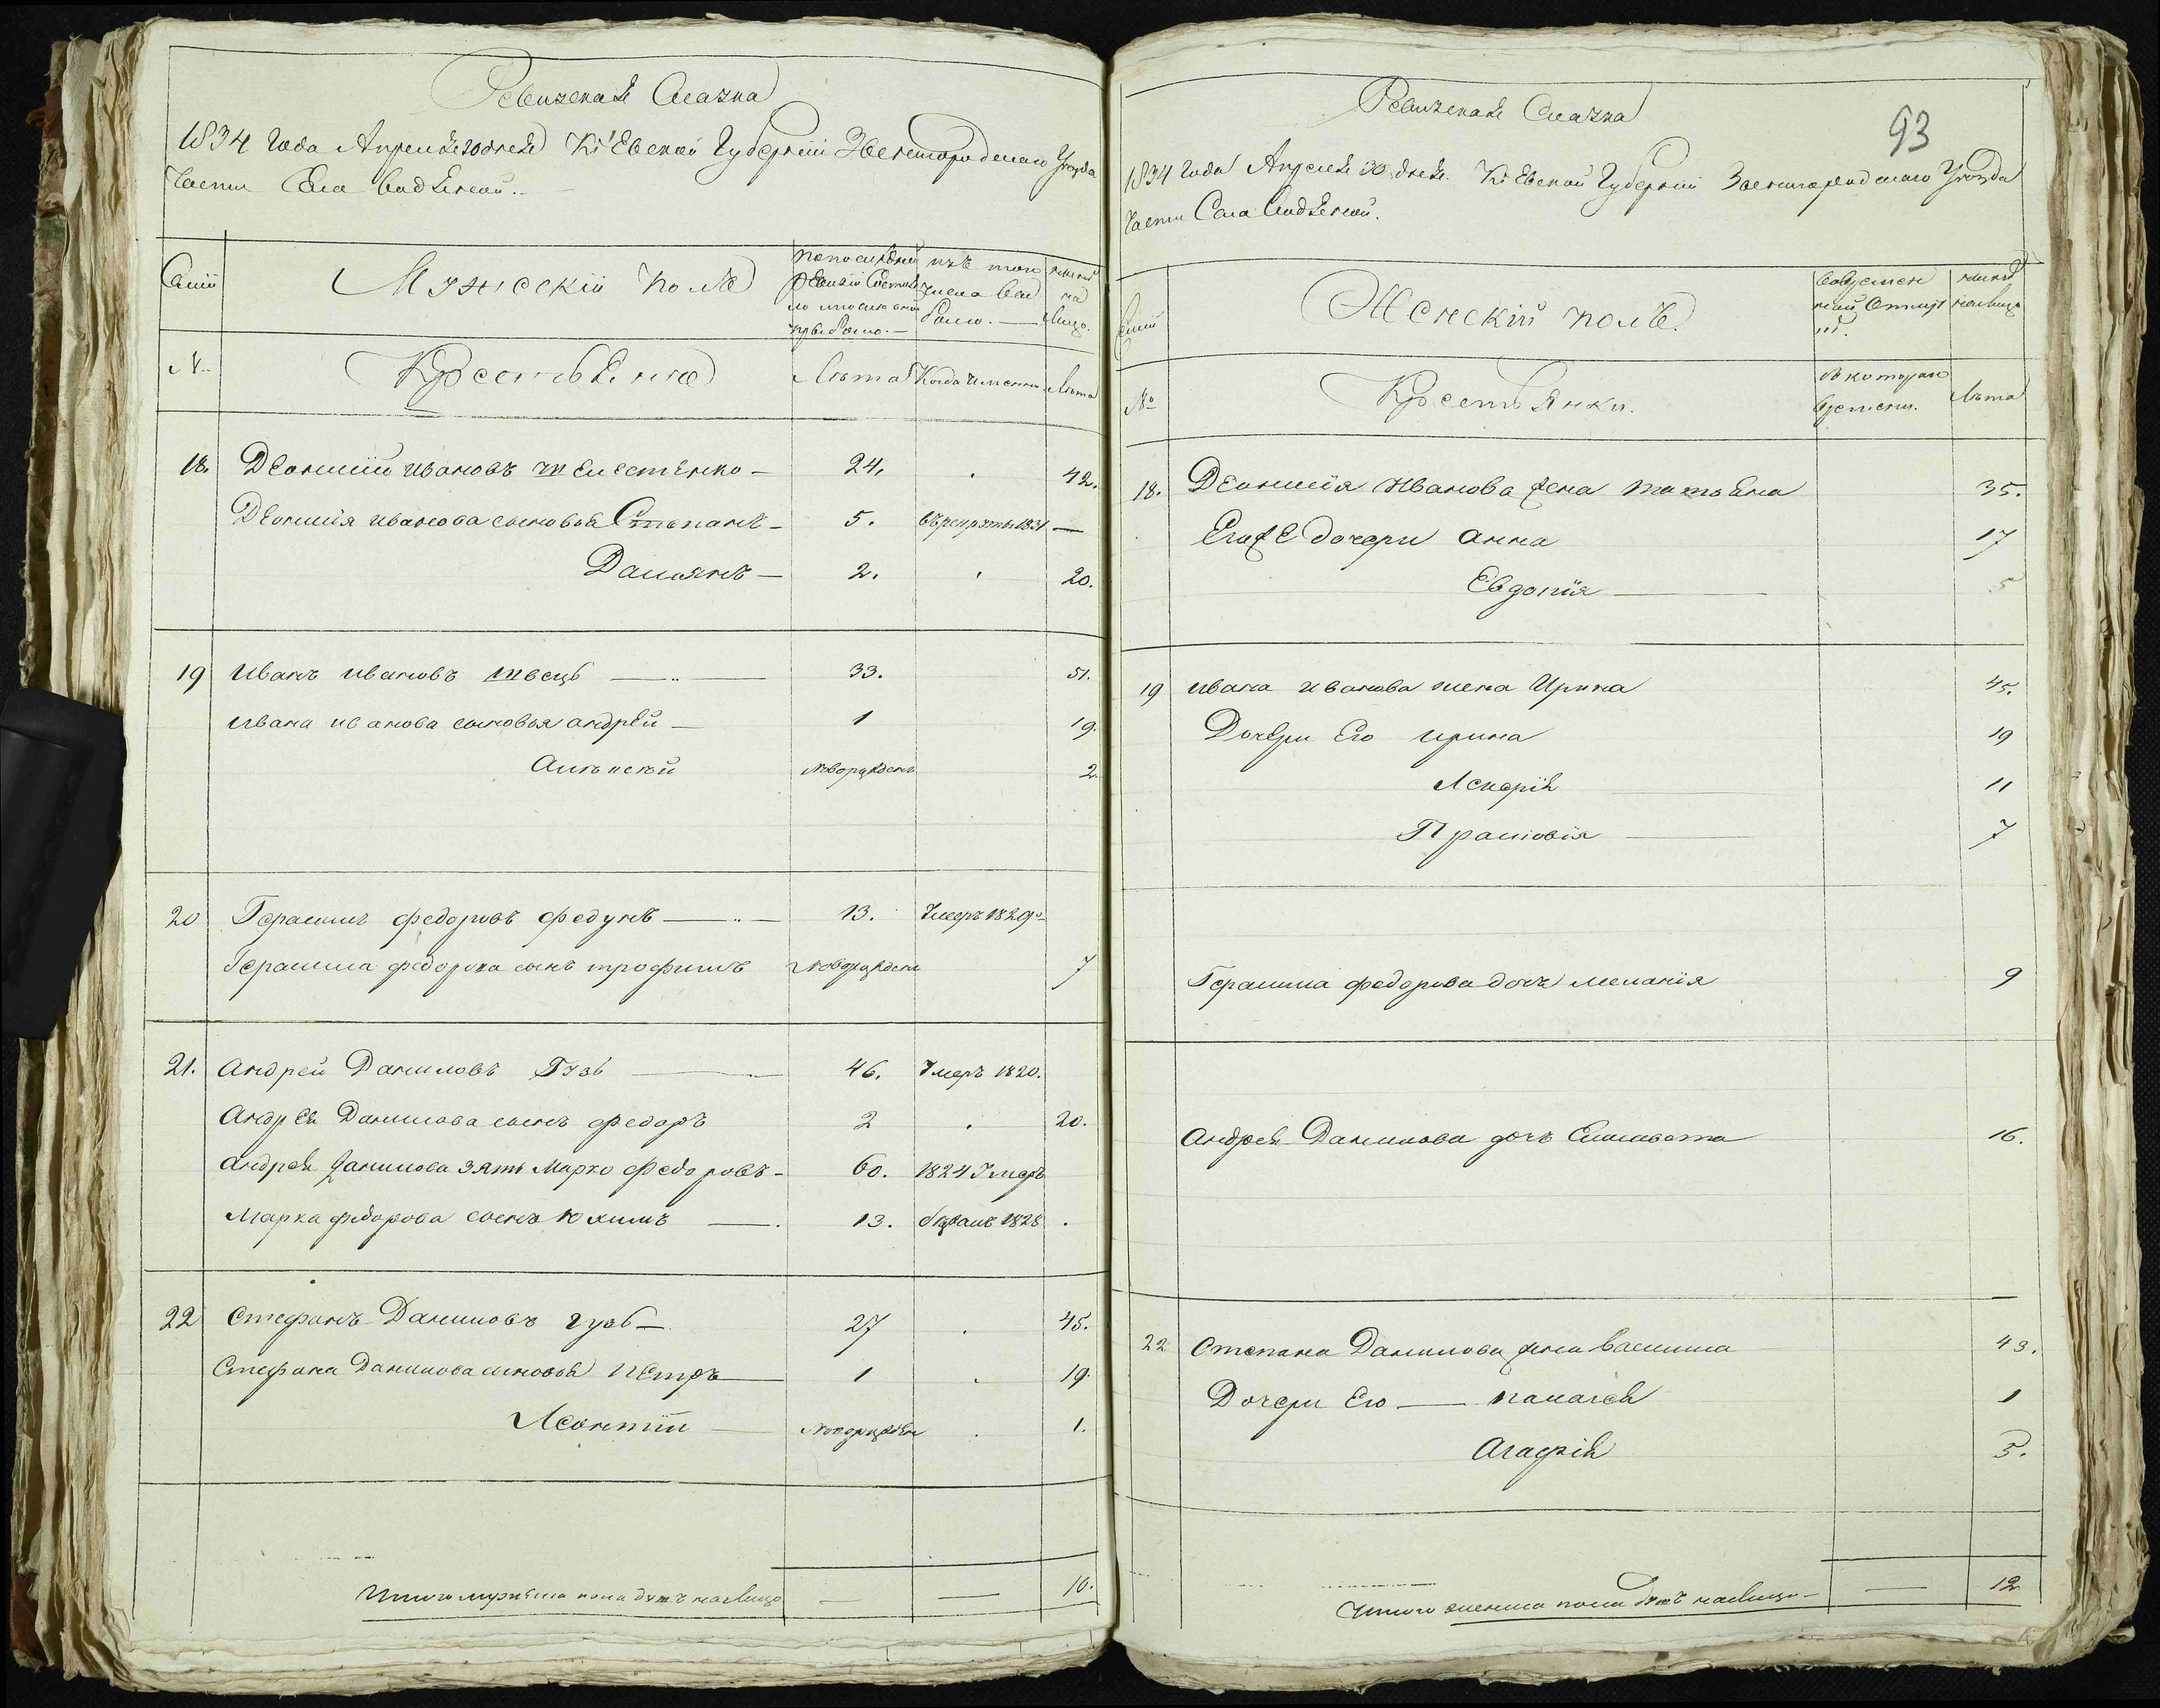 Ревизская Сказка
1834 Года Апреля 30 дня Кіевской Губерніи Звенигородскаго Уезда
Части Села
Семіи
Мужескій полъ
по последней ревизіи состояло и после оной прибыло.
изъ того числа выбыло.
ныне на лицо.
№
Крестьяне
Лѣта
Когда именно
Лѣта
18. Деонисій Ивановъ 24. 42.
Деонисія Иванова сыновья Степанъ 5. въ рекруты 1831 —
Дамянъ — 2. 20.
19 Иванъ Ивановъ швець — 33. 51.
Ивана Иванова сыновья Андрей — 1 19.
Алексей новорожденъ 2.
20 Герасимъ Федоровъ Федунъ — 13. Умеръ 1829
Герасима Федорова сынъ Трофимъ новорожденъ 7
21. Андрей Даниловъ Гузь — 46. Умеръ 1820.
Андрея Данилова сынъ Федоръ 2 20.
Андрея Данилова зять Марко Федоровъ - 60. 1824 Умеръ
Марка Федорова сынъ Юхимъ — 13. бѣжалъ 1828
22 Стефанъ Даниловъ гузь — 27 45.
Стефана Данилова сыновья Петръ 1 19.
Леонтій — новорожден 1.
Итого мужеска пола душъ на лицо — — 10.
93
Ревизская Сказка
1834 года Апреля 30 дня. Кіевской Губерніи Звенигородскаго Уезда
Части Села
Семіи
Женскій полъ.
во временной отлучке.
ныне на лицо
№
Крестьянки.
съ котораго времени.
Лѣта
18. Деонисія Иванова жена Татьяна 35.
Его же дочери Анна 17
Евдокія 5
19 Ивана Иванова жена Ирина 45.
Дочери Его Ирина 19
Лскерія 11
Прасковія 7
Герасима Федорова дочь Меланія 9
Андрея Данилова дочь Елисавета 16.
22 Степана Данилова жена Василина 43.
Дочери Его — Палагея 1
Агафія 5.
Итого женска пола душъ на лицо — — 12